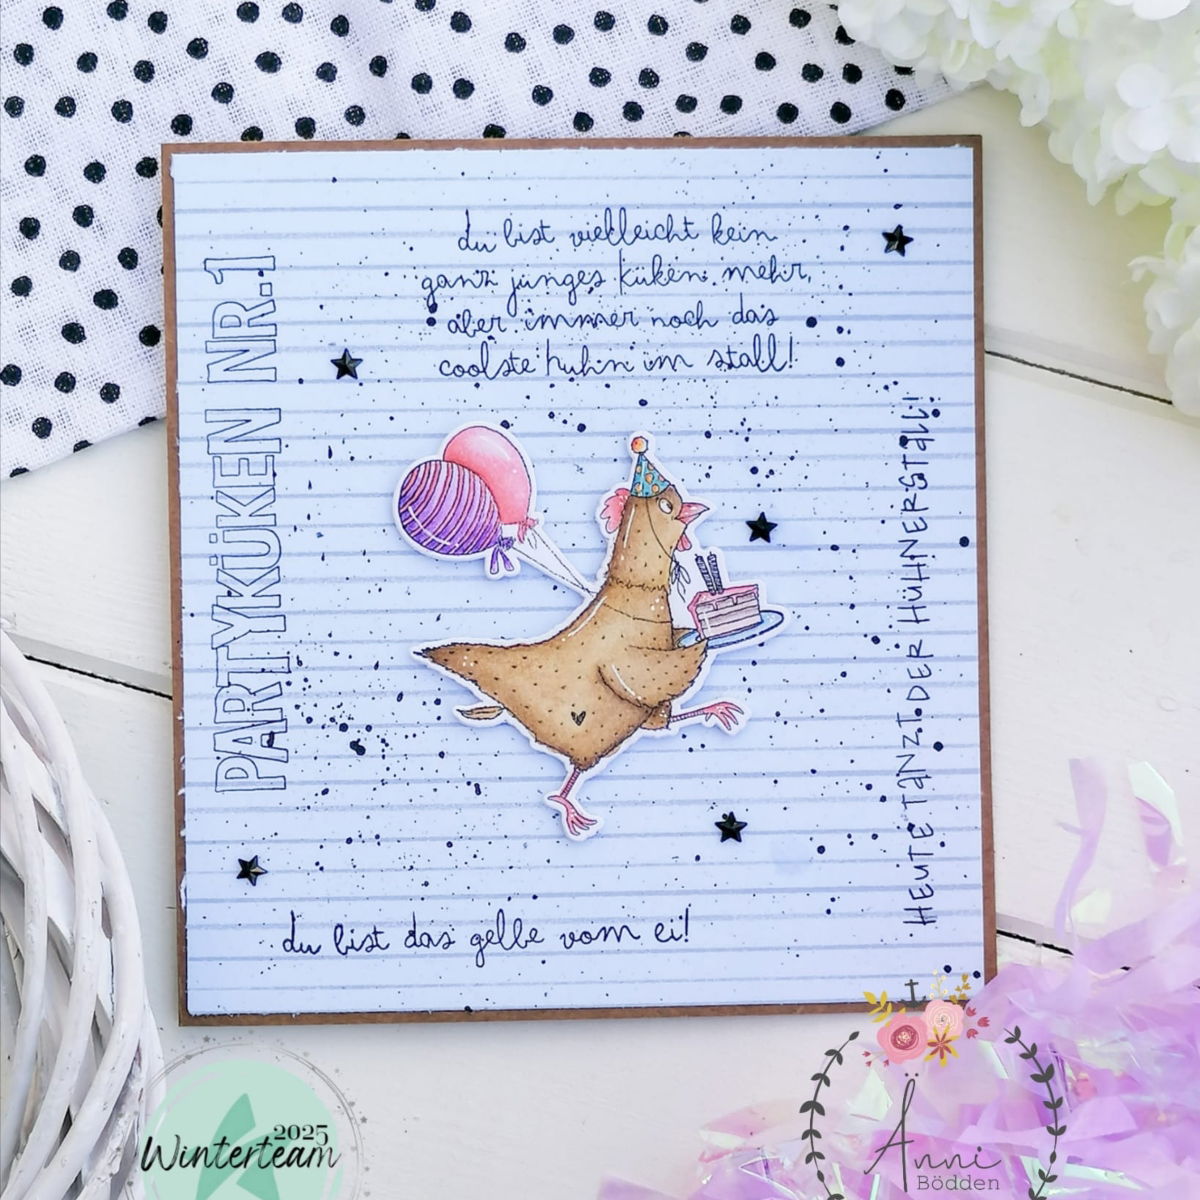 du bist vielleicht kein
ganz junges küken mehr,
aber immer noch das
coolste huhn im stall!
PARTYKÜKEN NR.1
HEUTE TANZT DER HÜHNERSTALL!
du bist das gelbe vom ei!
2025
Winterteam
Änni
Bödden